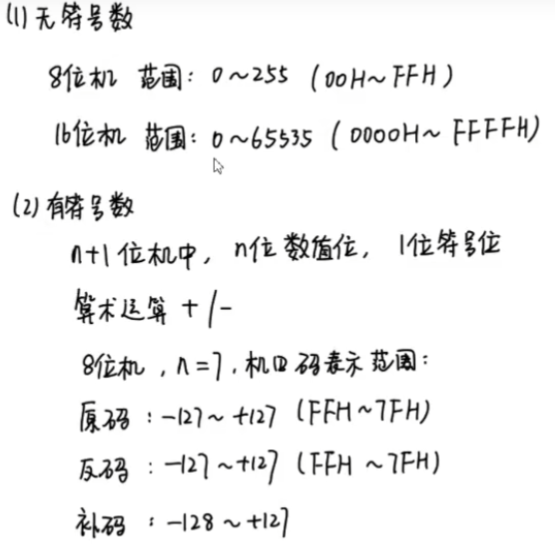 (1) 无符号数
8位机 范围: 0~255 (00H~FFH)
16位机 范围: 0~65535 (0000H~FFFFH)
(2) 有符号数
n+1位机中, n位数值位, 1位符号位
算术运算 +/-
8位机, n=7, 机口码表示范围:
原码: -127~+127 (FFH~7FH)
反码: -127~+127 (FFH~7FH)
补码: -128~+127